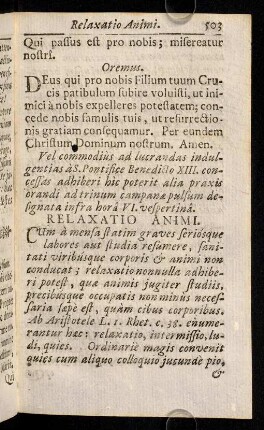 Relaxatio Animi. 503
Qui passus est pro nobis; misereatur
nostri.
Oremus.
DEus qui pro nobis Filium tuum Cru-
cis patibulum subire voluisti, ut ini-
mici à nobis expelleres potestatem; con-
cede nobis famulis tuis, ut resurrectio-
nis gratiam consequamur. Per eundem
Christum Dominum nostrum. Amen.
Vel commodius ad lucrandas indul-
gentias à S. Pontifice Benedicto XIII. con-
cessas adhiberi hic poterit alia praxis
orandi ad trinum campanæ pulsum de-
signata infra horâ VI. vespertinâ.
RELAXATIO ANIMI.
CUm à mensa statim graves seriósque
labores aut studia resumere, sani-
tati viribúsque corporis & animi non
conducat; relaxatio nonnulla adhibe-
ri potest, quæ animis jugiter studiis,
precibúsque occupatis non minùs neces-
saria sæpe est, quàm cibus corporibus.
Ab Aristotele L. 1. Rhet. c. 38. enume-
rantur hæc: relaxatio, intermissio, lu-
di, quies. Ordinariè magis convenit
quies cum aliquo colloquio jucunde pio,
&